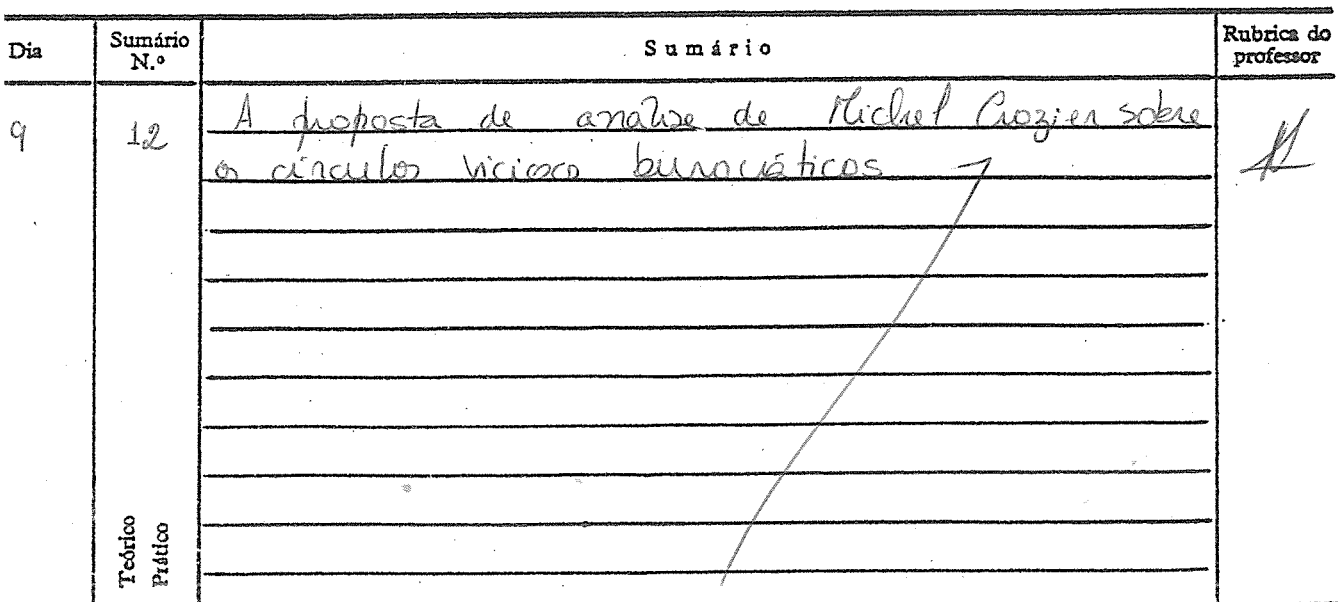 Dia Sumário N.º Sumário Rubrica do professor
9 12 A proposta de analise de Michel Crozier sobre
os círculos viciosos burocráticos
Teórico
Prático